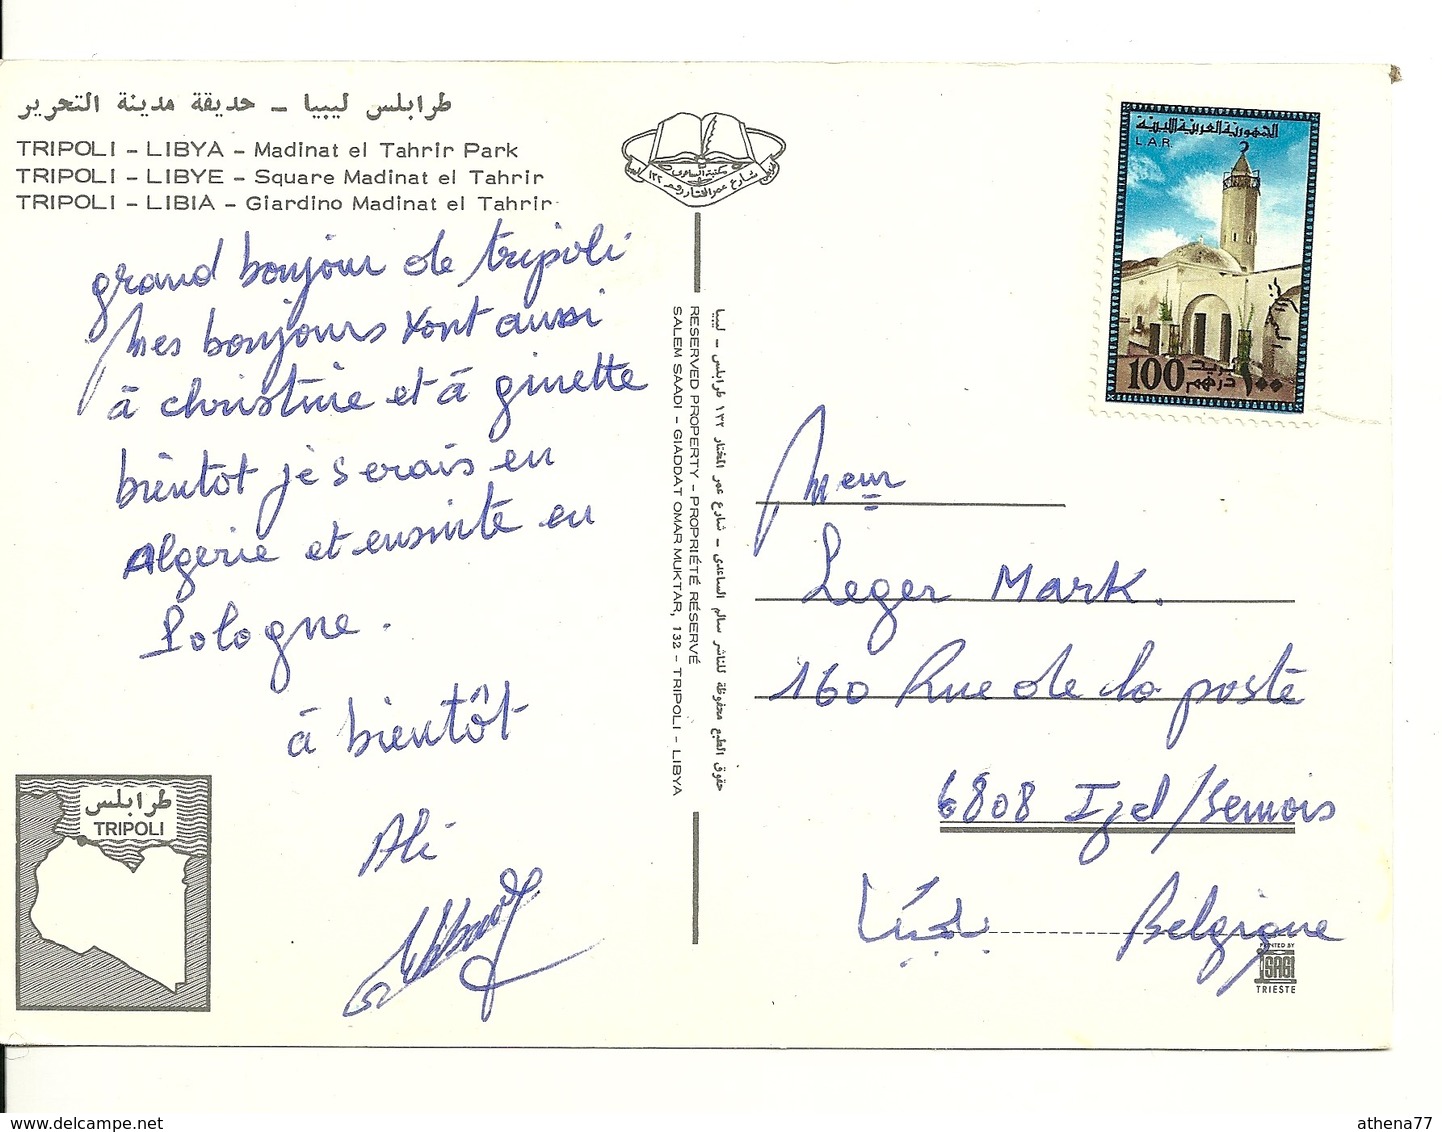 طرابلس ليبيا – حديقة مدينة التحرير
TRIPOLI – LIBYA – Madinat el Tahrir Park
TRIPOLI – LIBYE – Square Madinat el Tahrir
TRIPOLI – LIBIA – Giardino Madinat el Tahrir
grand bonjour de tripoli
mes bonjours vont aussi
à christine et à ginette
bièntot je serais en
Algerie et ensuite en
Pologne.
à bientôt
Ali
طرابلس
TRIPOLI
مكتبة الساعدي
شارع عمر المختار رقم ١٣٢
حقوق الطبع محفوظة للناشر سالم الساعدي – شارع عمر المختار ١٣٢ طرابلس – ليبيا
RESERVED PROPERTY – PROPRIÉTÉ RÉSERVÉ
SALEM SAADI – GIADDAT OMAR MUKTAR, 132 – TRIPOLI – LIBYA
الجمهورية العربية الليبية
L.A.R.
100 بريد ١٠٠
درهم
Meur
Leger Mark.
160 Rue de la poste
6808 Izel/Semois
بلجيكا Belgique
PRINTED BY
SAGI
TRIESTE
www.delcampe.net
athena77